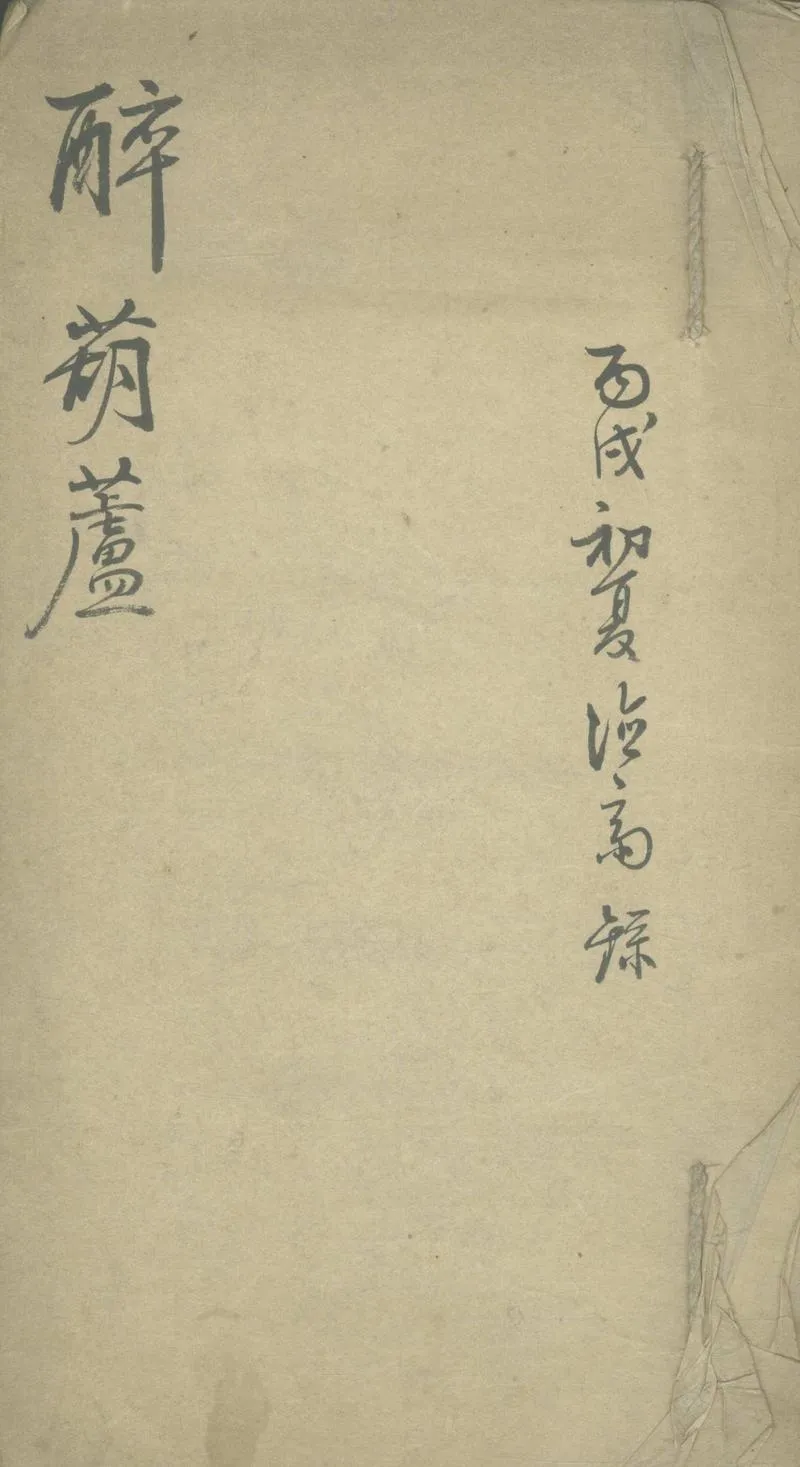 丙戌初夏 錄
醉葫蘆